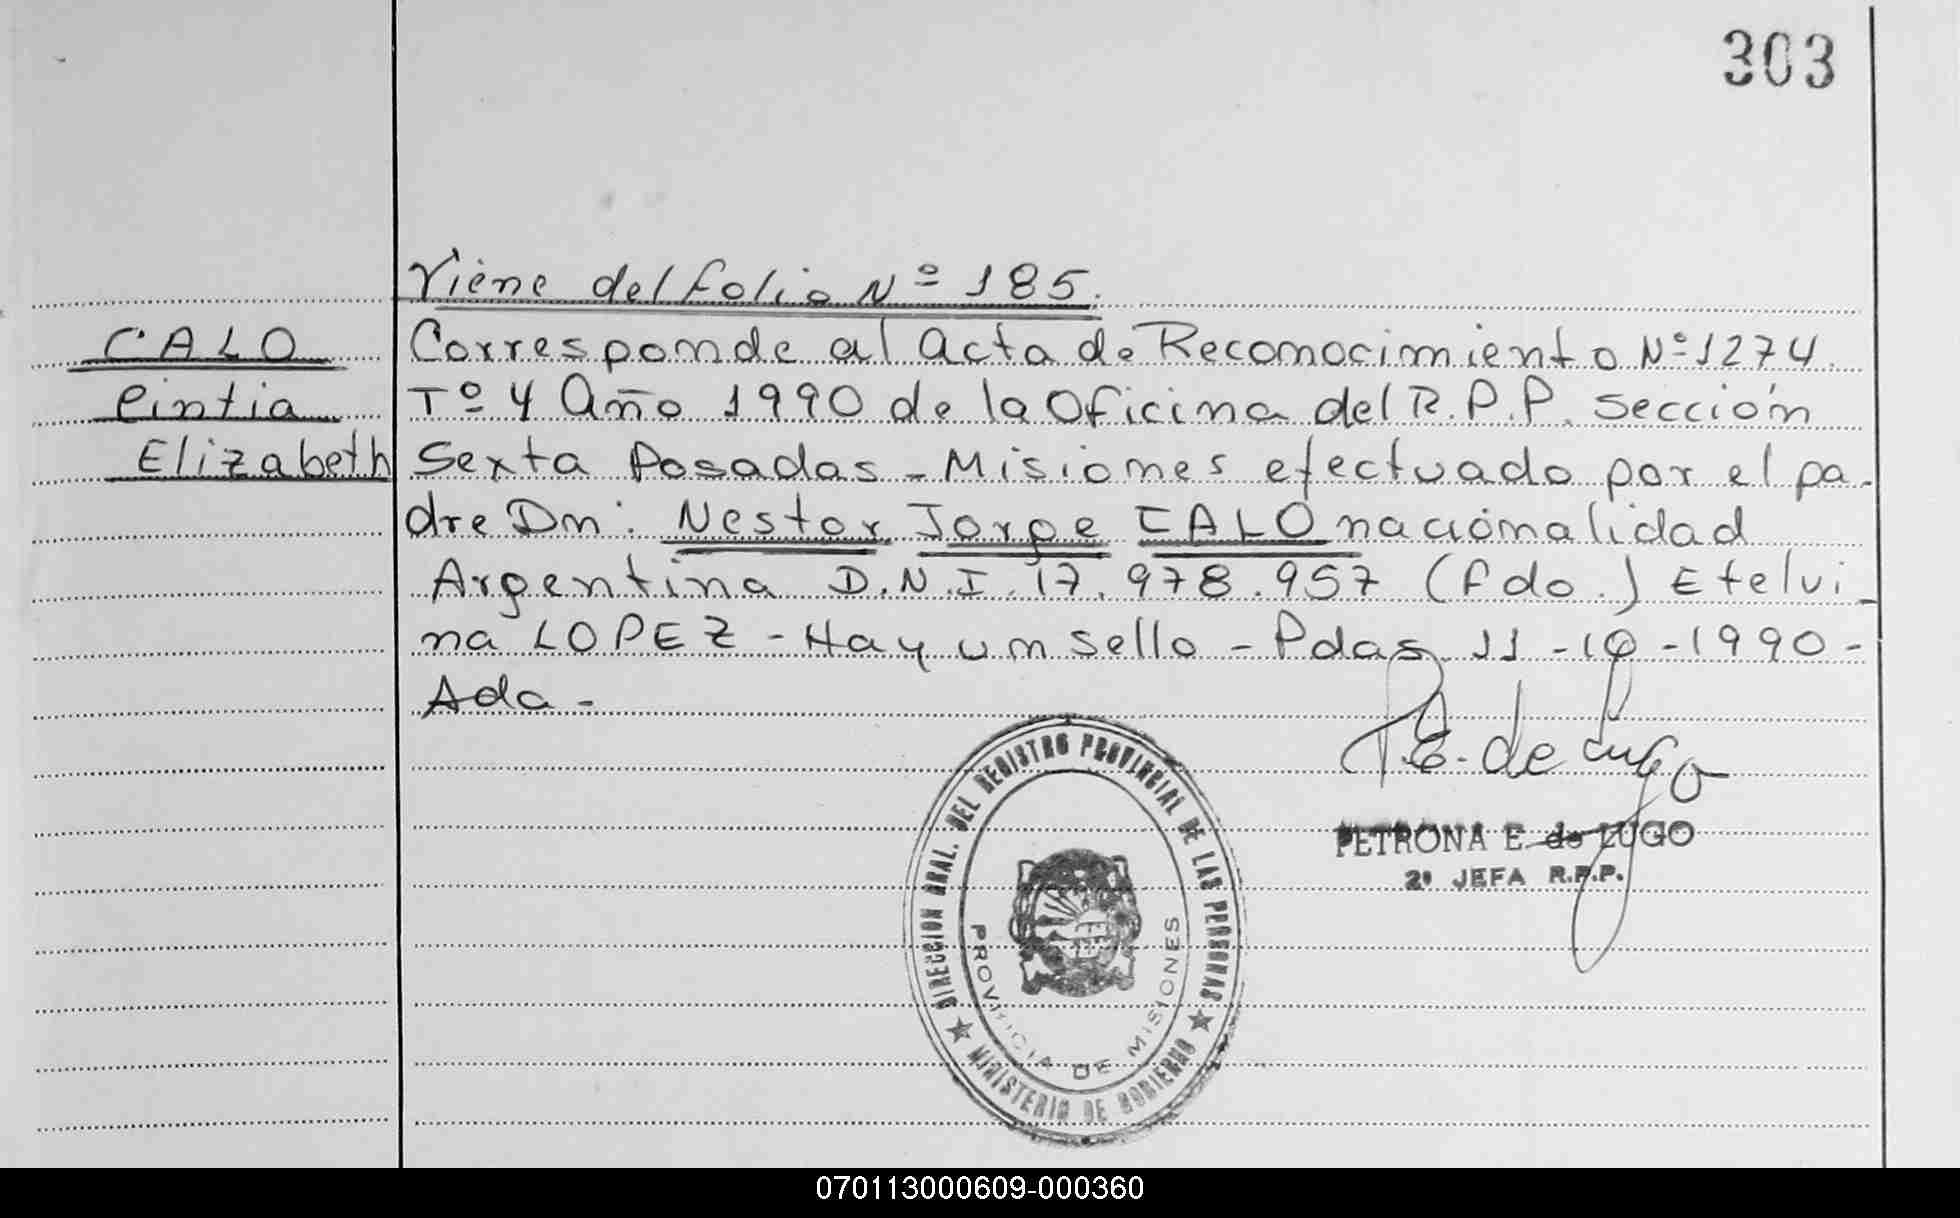 303
Viene del folio Nº 185.
CALO
Cintia
Elizabeth
Corresponde al acta de Reconocimiento Nº 1274
Tº 4 Año 1990 de la Oficina del R.P.P. sección
Sexta Posadas - Misiones efectuado por el pa-
dre Dn: Nestor Jorge CALO nacionalidad
Argentina D.N.I. 17.978.957 (fdo.) Etelvi-
na LOPEZ - Hay un sello - Pdas 11-10-1990-
Ada-
P.E. de Lugo
PETRONA E. de LUGO
2º JEFA R.P.P.
DIRECCION GRAL. DEL REGISTRO PROVINCIAL DE LAS PERSONAS
PROVINCIA DE MISIONES
★ MINISTERIO DE GOBIERNO ★
070113000609-000360